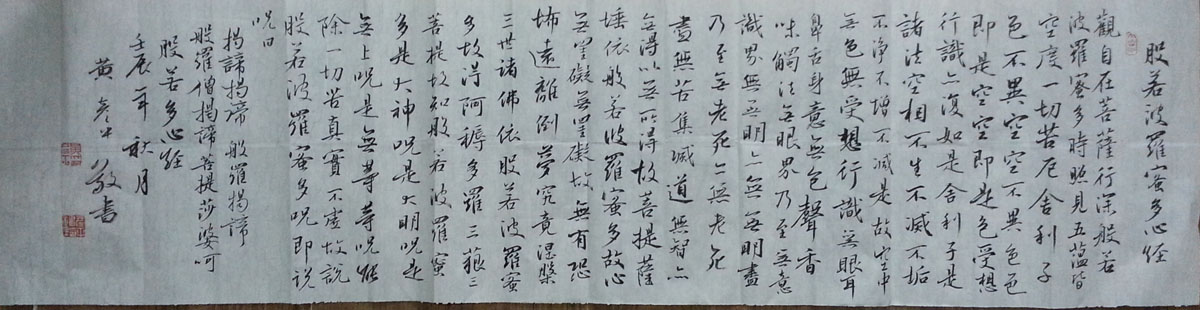 般若波羅蜜多心經
觀自在菩薩行深般若
波羅蜜多時照見五蘊皆
空度一切苦厄舍利子
色不異空空不異色色
即是空空即是色受想
行識亦復如是舍利子是
諸法空相不生不滅不垢
不淨不增不減是故空中
無色無受想行識無眼耳
鼻舌身意無色聲香
味觸法無眼界乃至無意
識界無無明亦無無明盡
乃至無老死亦無老死
盡無苦集滅道無智亦
無得以無所得故菩提薩
埵依般若波羅蜜多故心
無罣礙無罣礙故無有恐
怖遠離倒夢究竟涅槃
三世諸佛依般若波羅蜜
多故得阿耨多羅三藐三
菩提故知般若波羅蜜
多是大神咒是大明咒是
無上咒是無等等咒能
除一切苦真實不虛故說
般若波羅蜜多咒即說
咒曰
揭諦揭諦 般羅揭諦
般羅僧揭諦菩提莎婆呵
般若多心經
壬辰年秋月
黃 敬書